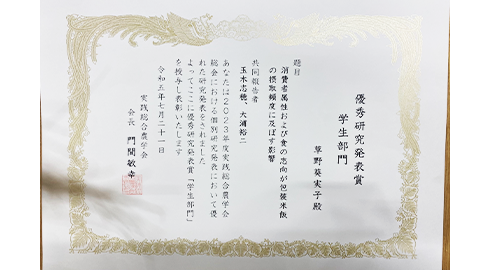 優秀研究発表賞
学生部門
草野葵実子殿
題目
消費者属性および食の志向が包装米飯
の摂取頻度に及ぼす影響
共同報告者
玉木志穂、大浦裕二
あなたは2023年度実践総合農学会
総会における個別研究発表において優
れた研究発表をされました
よってここに優秀研究発表賞「学生部門」
を授与し表彰いたします
令和五年七月二十一日
実践総合農学会
会長 門間敏幸